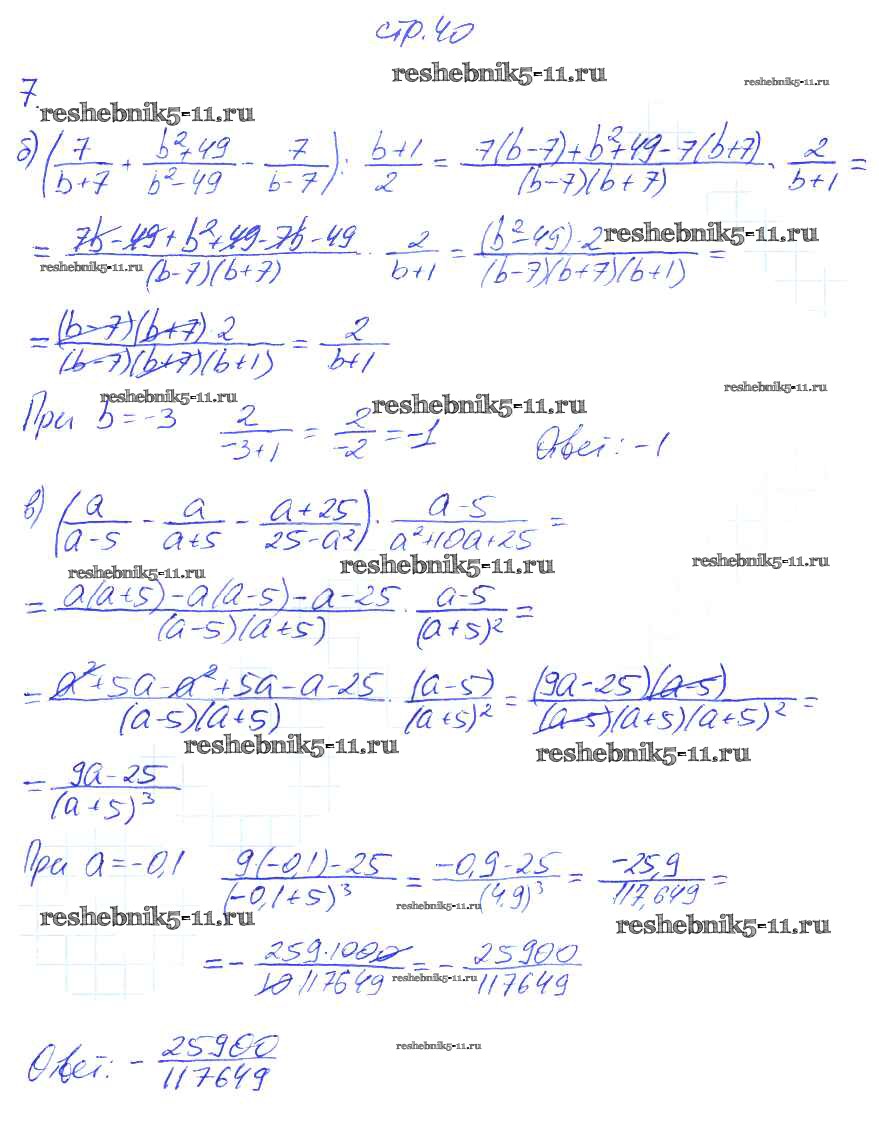 стр. 40
reshebnik5-11.ru
reshebnik5-11.ru
7.
reshebnik5-11.ru
б) (7/(b+7) + (b²+49)/(b²-49) - 7/(b-7)) : (b+1)/2 = (7(b-7)+b²+49-7(b+7))/((b-7)(b+7)) · 2/(b+1) =
= (7b-49+b²+49-7b-49)/((b-7)(b+7)) · 2/(b+1) = ((b²-49)·2)/((b-7)(b+7)(b+1)) =
reshebnik5-11.ru
reshebnik5-11.ru
= ((b-7)(b+7)·2)/((b-7)(b+7)(b+1)) = 2/(b+1)
reshebnik5-11.ru
reshebnik5-11.ru
reshebnik5-11.ru
При b=-3 2/(-3+1) = 2/(-2) = -1 Ответ: -1
в) (a/(a-5) - a/(a+5) - (a+25)/(25-a²)) · (a-5)/(a²+10a+25) =
reshebnik5-11.ru
reshebnik5-11.ru
reshebnik5-11.ru
= (a(a+5)-a(a-5)-a-25)/((a-5)(a+5)) · (a-5)/(a+5)² =
= (a²+5a-a²+5a-a-25)/((a-5)(a+5)) · (a-5)/(a+5)² = ((9a-25)(a-5))/((a-5)(a+5)(a+5)²) =
reshebnik5-11.ru
reshebnik5-11.ru
= (9a-25)/(a+5)³
При a=-0,1 (9·(-0,1)-25)/(-0,1+5)³ = (-0,9-25)/(4,9)³ = -25,9/117,649 =
reshebnik5-11.ru
reshebnik5-11.ru
reshebnik5-11.ru
= - (259·1000)/(10·117649) = - 25900/117649
reshebnik5-11.ru
Ответ: - 25900/117649
reshebnik5-11.ru